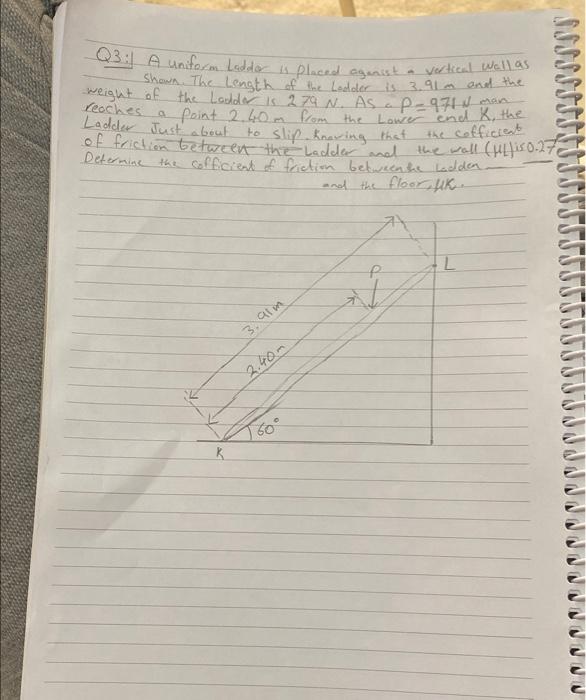 Q3:| A uniform Ladder is placed aganist a vertical wall as
shown. The Length of the Ladder is 3.91 m and the
weight of the Ladder is 279 N. As a P = 971 N man
reaches a point 2.40 m from the Lower end K, the
Ladder Just about to slip. Knowing that the cofficient
of friction between the Ladder and the wall (μL) is 0.27
Determine the cofficient of friction between the Ladden
and the floor, μK.
L
P
3.91m
2.40m
60°
K